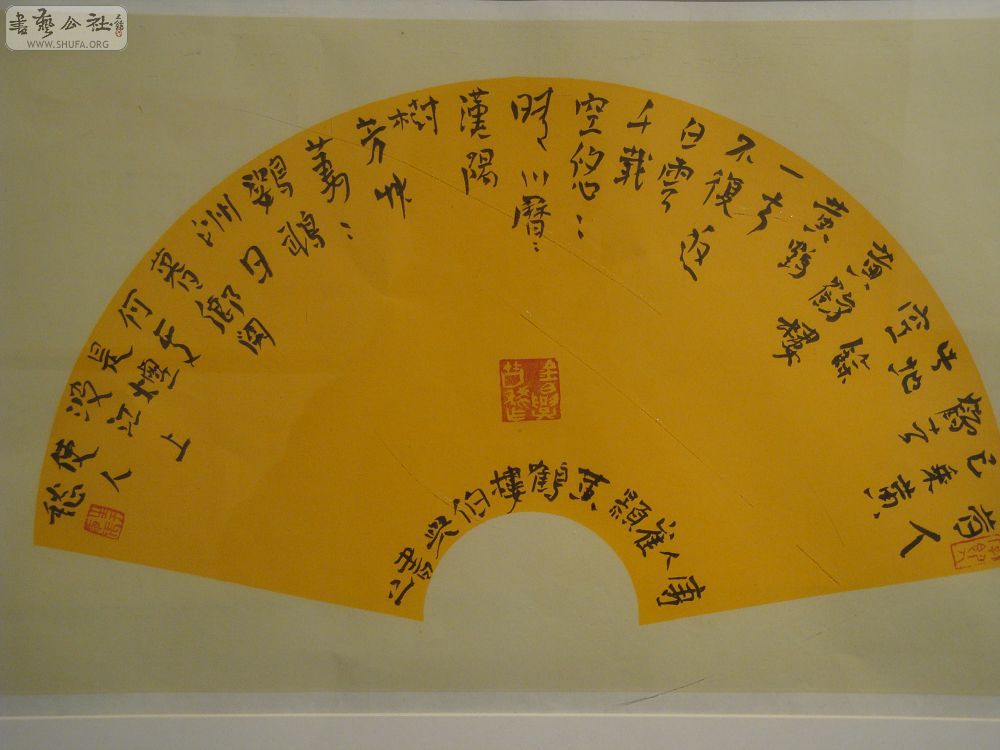 昔人
已乘黄
鶴去
此地
空餘
黄鶴樓
黄鶴
一去
不復返
白雲
千載
空悠〻
晴川曆〻
漢陽
樹
芳艸
萋〻
鸚鵡
洲日
暮鄉關
何處
是煙
波江上
使人
愁
唐人崔顥黄鶴樓
书艺公社
WWW.SHUFA.ORG